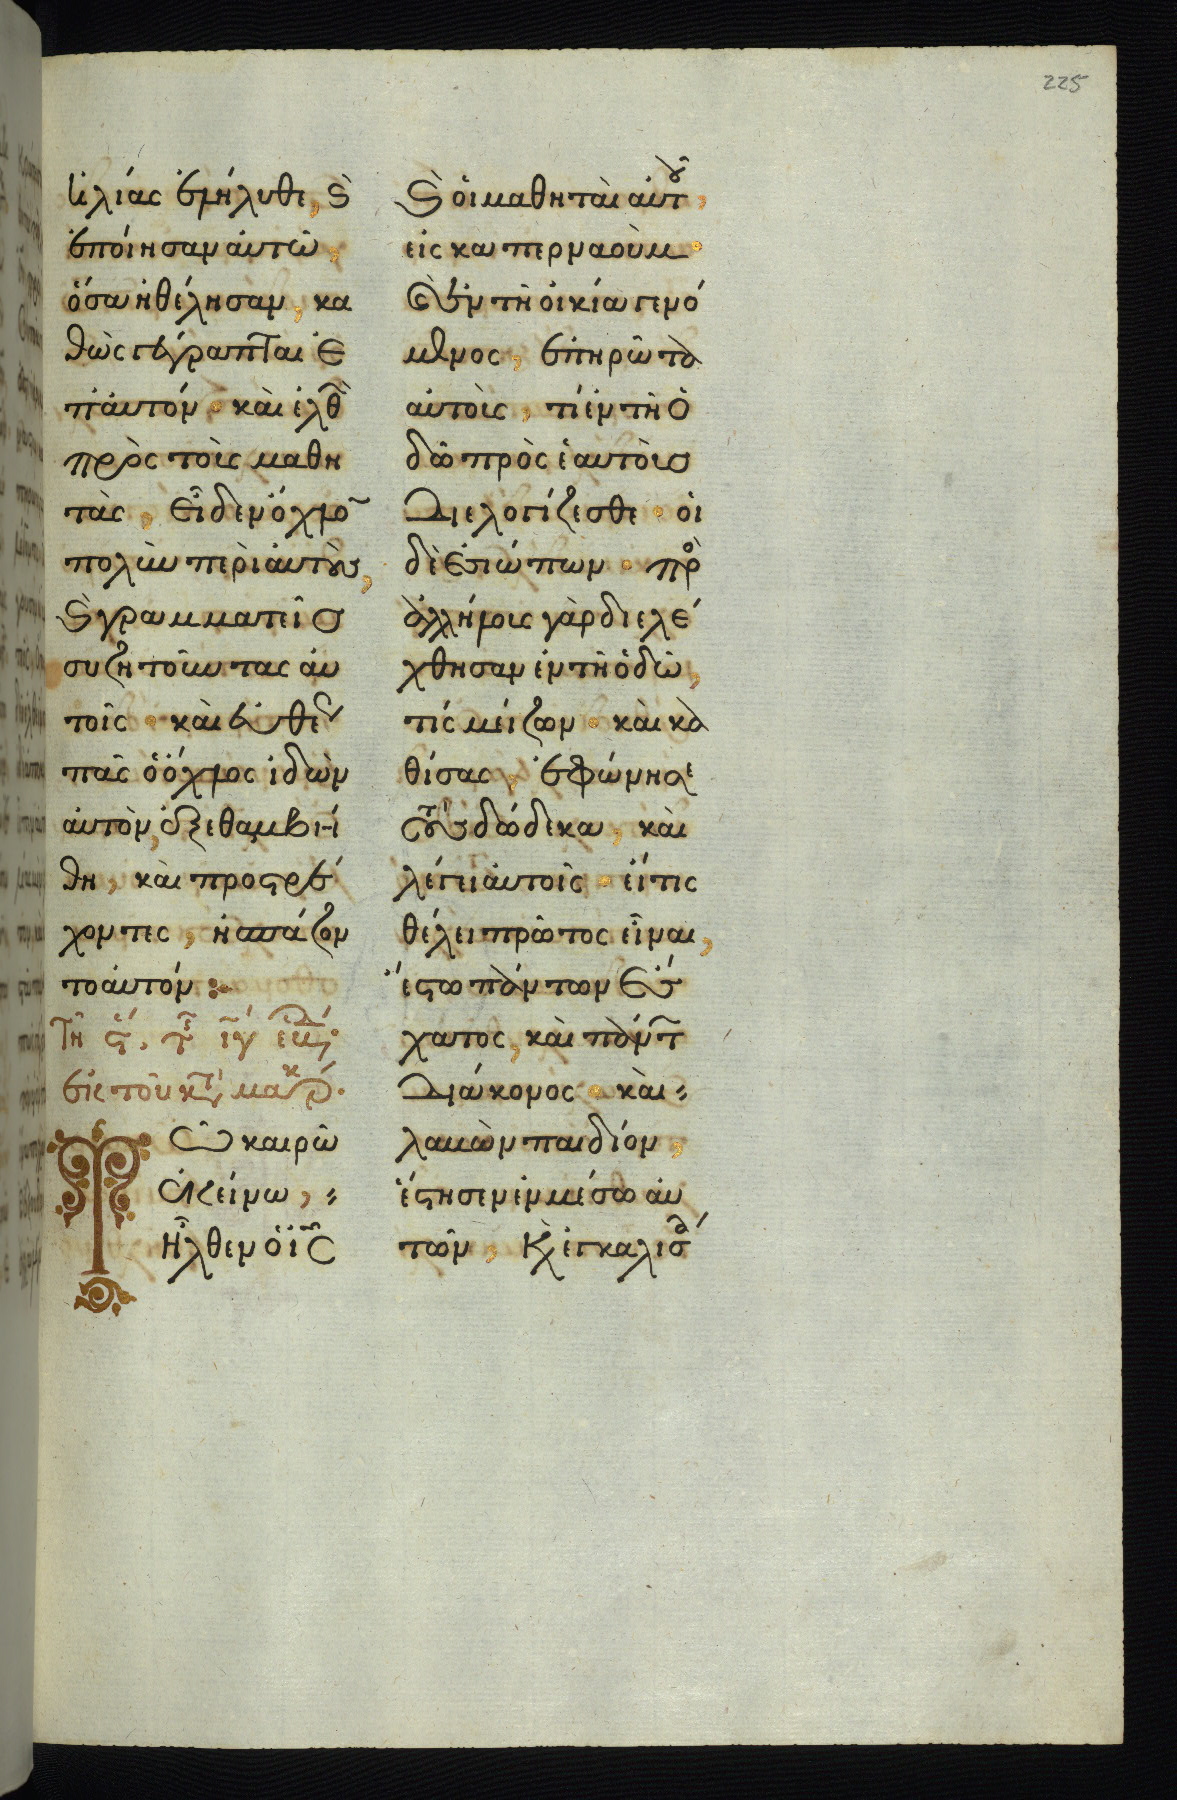 225
ἠλίας ἐλήλυθε, ϗ
ἐποίησαν αὐτῶ,
ὅσα ἠθέλησαν, κα
θὼς γέγραπται ἐ
π' αὐτόν · καὶ ἐλθ
πρὸς τοὺς μαθη
τὰς, εἶδεν ὄχλο
πολὺν περὶ αὐτοὺς,
ϗ γραμματεῖς
συζητοῦντας αὐ
τοῖς · καὶ εὐθέ
πᾶς ὁ ὄχλος ἰδὼν
αὐτὸν, ἐξεθαμβή
θη, καὶ προστρέ
χοντες, ἠσπάζον
το αὐτόν :
τοῦ κτ μα
Τῶ καιρῶ
ἐκείνω,
ἦλθεν ὁ ἰς
ϗ οἱ μαθηταὶ αὐτοῦ,
εἰς καπερναούμ ·
ϗ ἐν τῆ οἰκία γενό
μενος, ἐπηρώτα
αὐτοὺς, τί ἐν τῆ ὁ
δῶ πρὸς ἑαυτοὺς
διελογίζεσθε · οἱ
δὲ ἐσιώπων · πρὸ
ἀλλήλους γὰρ διελέ
χθησαν ἐν τῆ ὁδῶ,
τίς μείζων · καὶ κα
θίσας, ἐφώνησε
τοὺς δώδεκα, καὶ
λέγει αὐτοῖς · εἴ τις
θέλει πρῶτος εἶναι,
ἔστω πάντων ἔσ
χατος, καὶ πάντ
διάκονος · καὶ
λαβὼν παιδίον,
ἔστησεν ἐν μέσω αὐ
τῶν, ϗ ἐγκαλισά